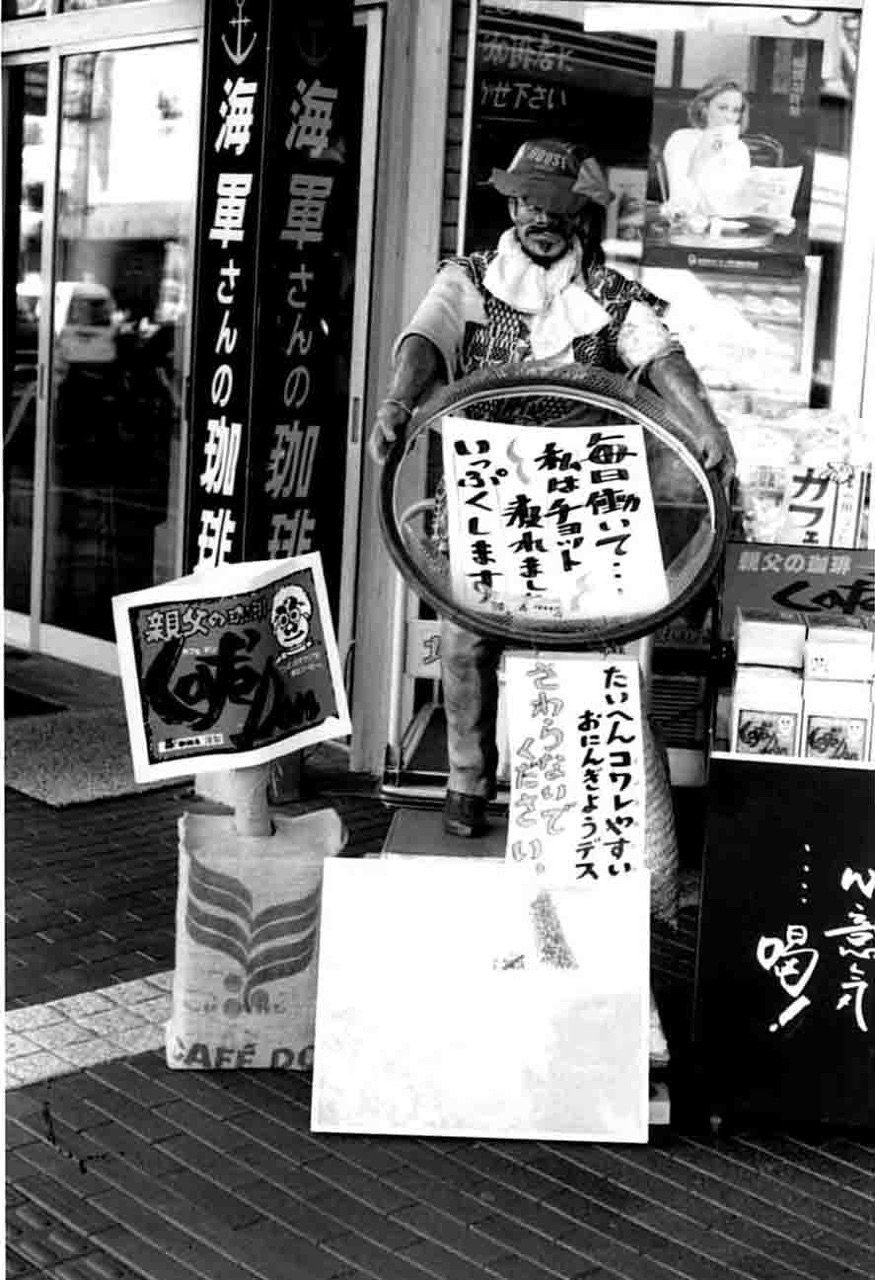 海軍さんの珈琲
海軍さんの珈琲
珈琲店に
せ下さい
毎日働いて・・・
私はチョット
疲れまし
いっぷくします
カフェ
親父の珈琲
親父の珈琲
たいへんコワレやすい
おにんぎょうデス
さわらないで
ください.
CAFÉ DO
意気
・・・・喝!